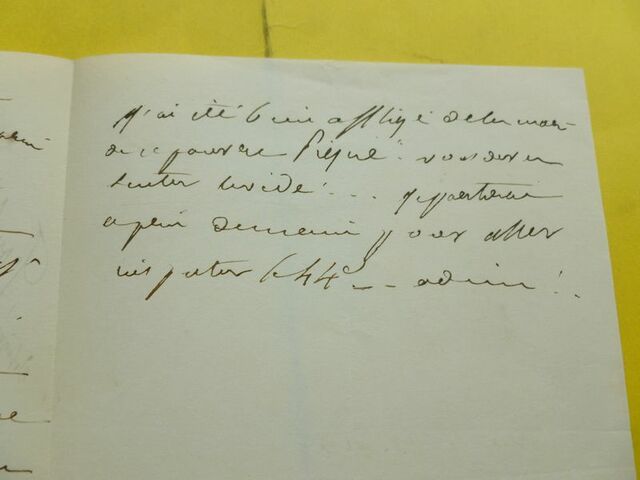 j'ai été bien affligé de la mort
de ce pauvre Piqué. vous devez en
sentir le vide! ... je partirai
après demain pour aller
inspecter le 44e _ _ adieu!.